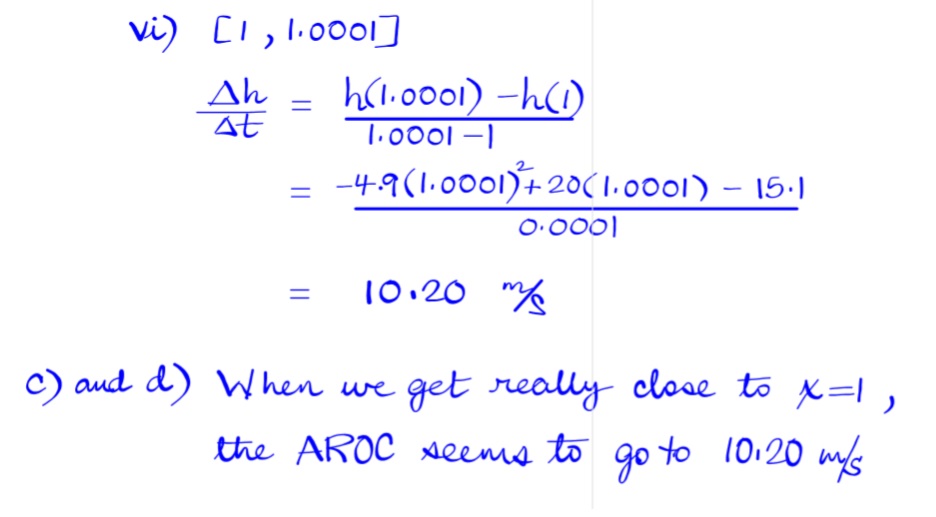 vi) [1, 1.0001]
Δh/Δt = (h(1.0001) - h(1))/(1.0001 - 1)
= (-4.9(1.0001)² + 20(1.0001) - 15.1)/0.0001
= 10.20 m/s
c) and d) When we get really close to x=1,
the AROC seems to go to 10.20 m/s